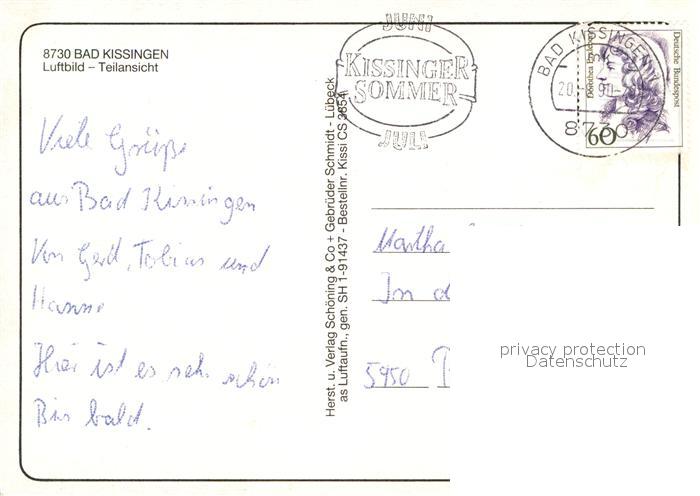 8730 BAD KISSINGEN
Luftbild – Teilansicht
Viele Grüße
aus Bad Kissingen
Von Gerd, Tobias und
Hanno
Hier ist es sehr schön
Bis bald.
Herst. u. Verlag Schöning & Co + Gebrüder Schmidt - Lübeck
as Luftaufn., gen. SH 1-91437 - Bestellnr. Kissi CS 3654
JUNI
KISSINGER
SOMMER
JULI
BAD KISSINGEN
8730
Deutsche Bundespost
60
Martha
In d
5950
privacy protection
Datenschutz